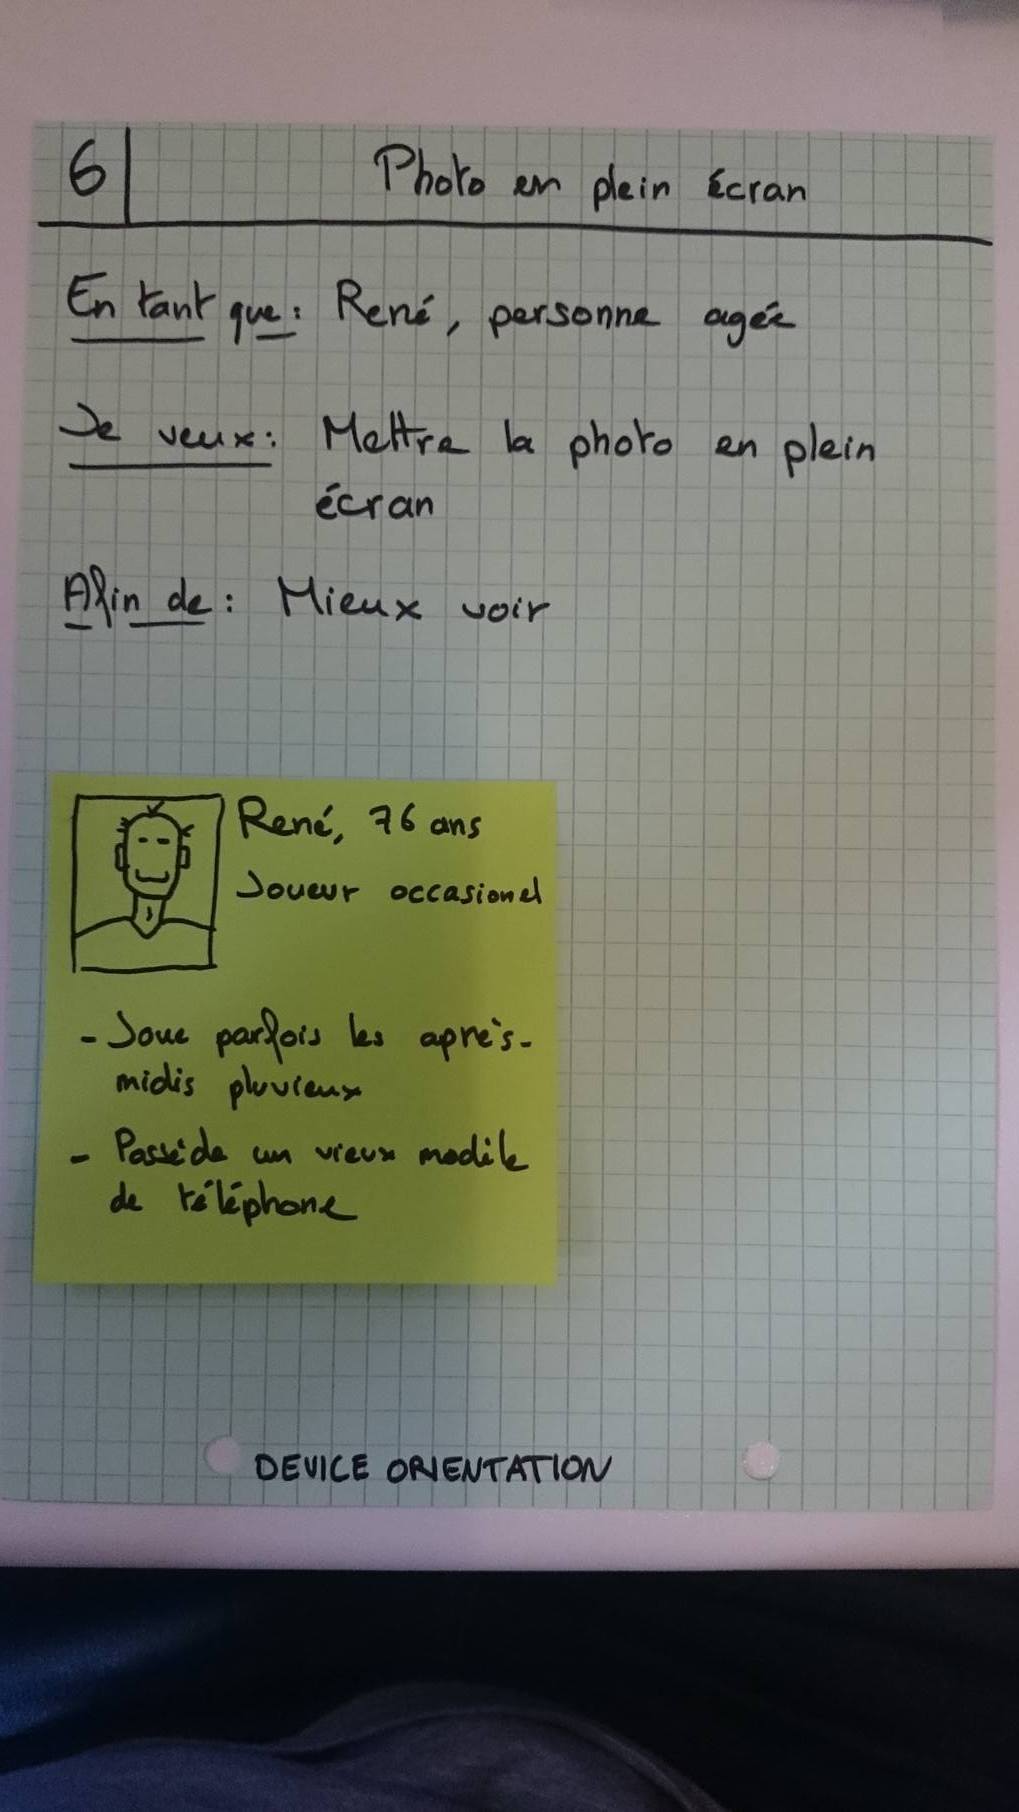 6 Photo en plein écran
En tant que: René, personne agée
Je veux: Mettre la photo en plein
écran
Afin de: Mieux voir
René, 76 ans
Joueur occasionel
- Joue parfois les après-
midis pluvieux
- Possède un vieux modèle
de téléphone
DEVICE ORIENTATION